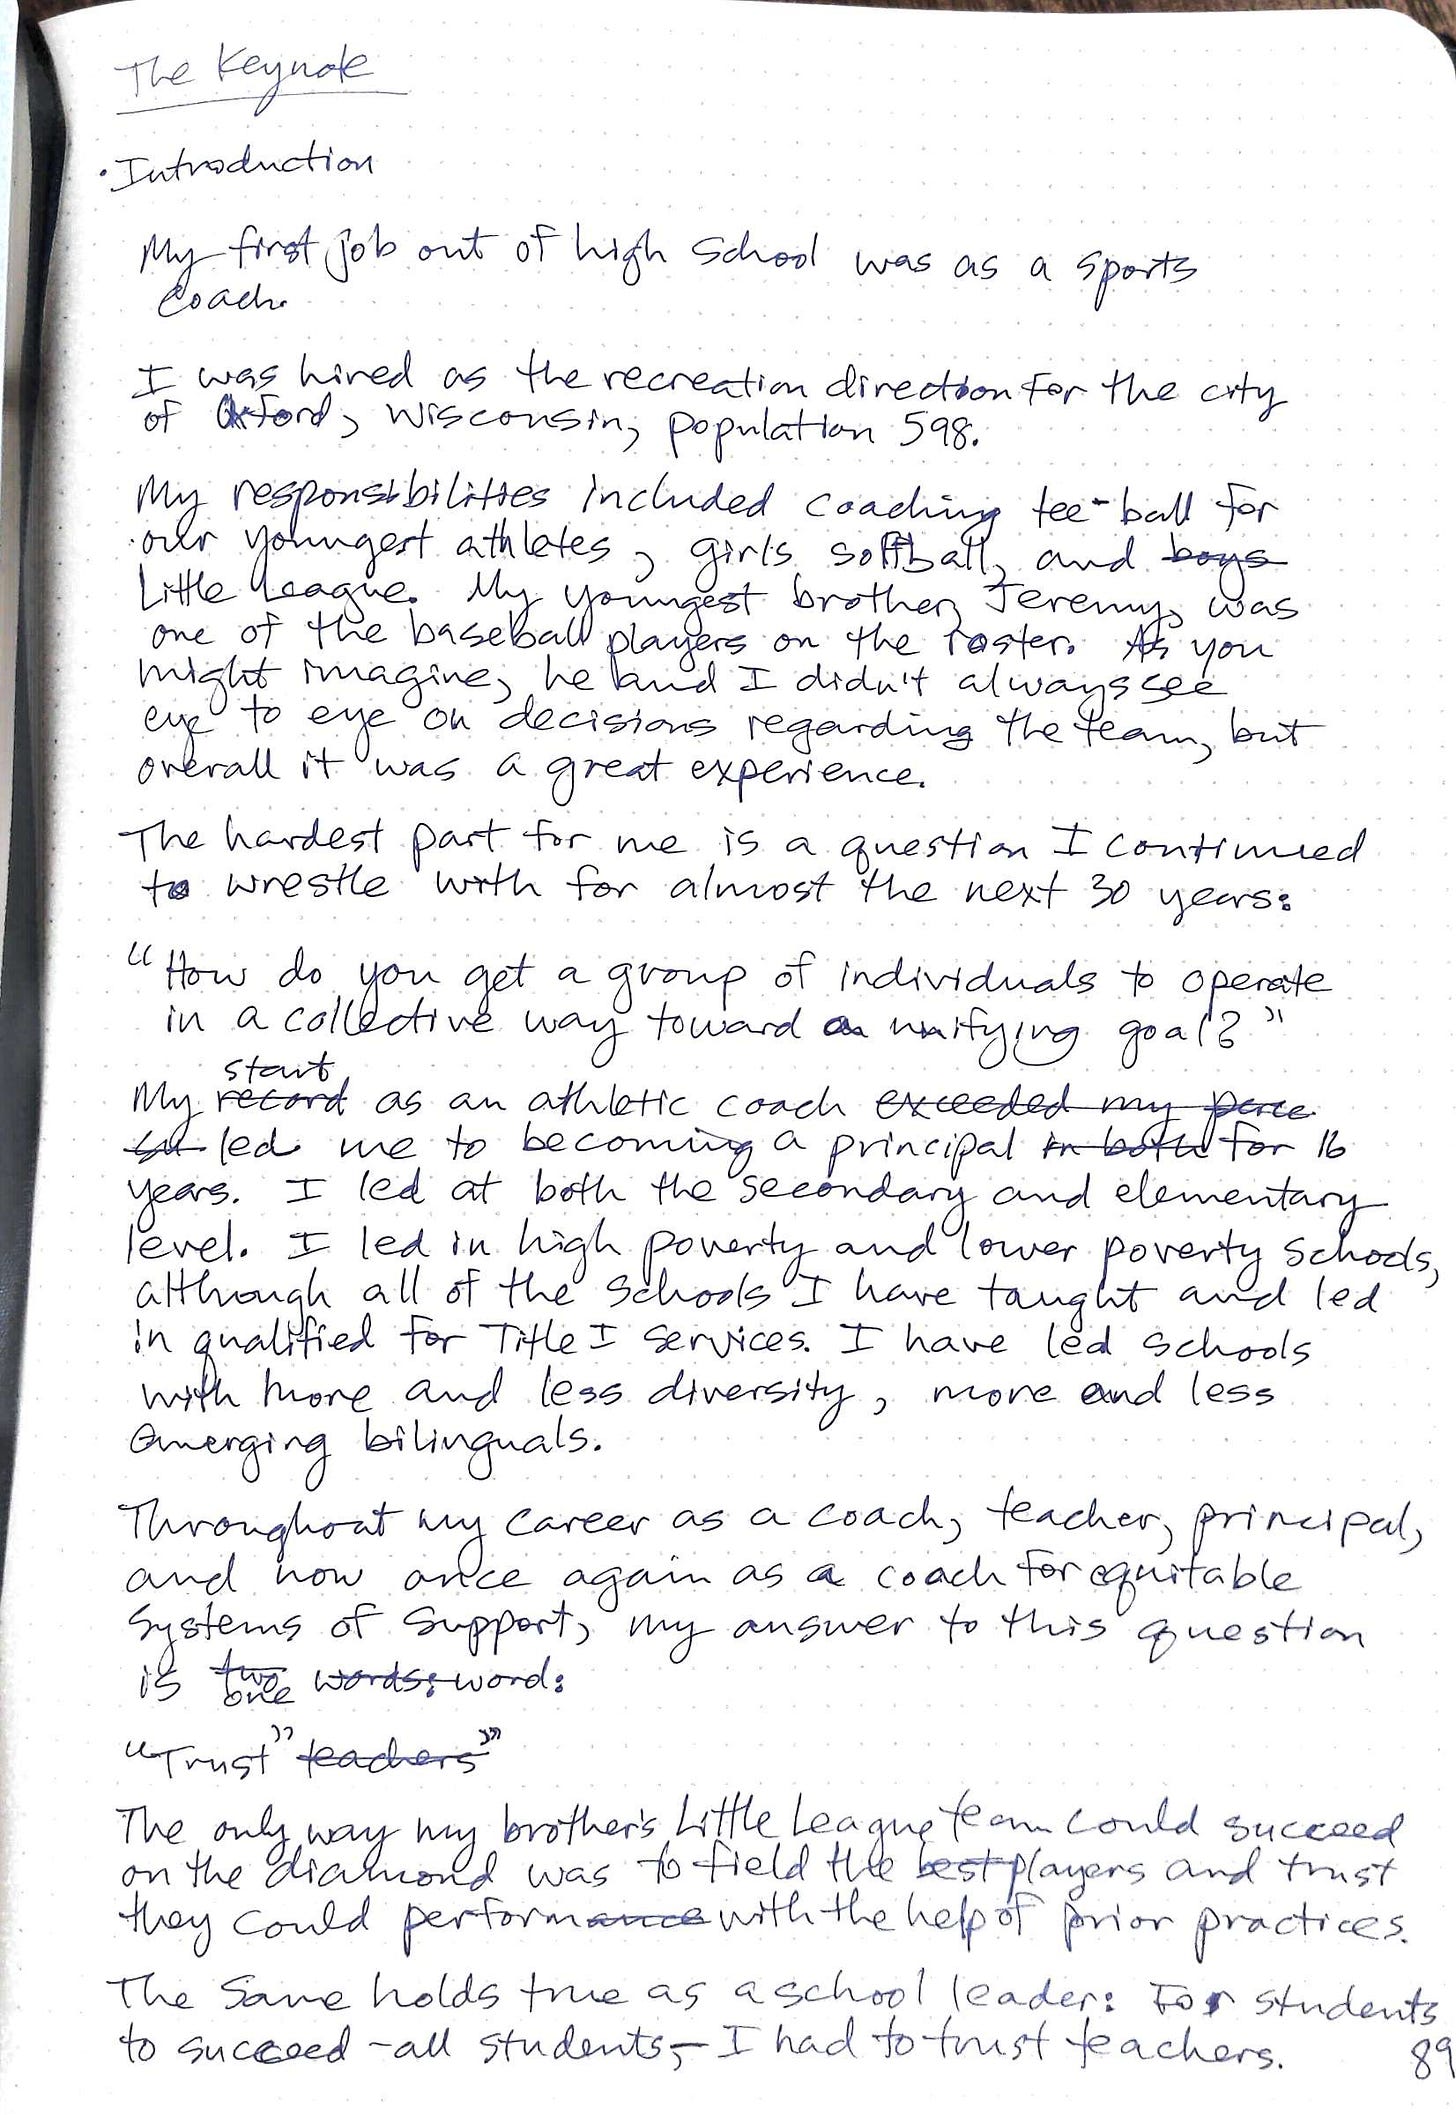 The Keynote
• Introduction
My first job out of high school was as a sports
coach.
I was hired as the recreation direction for the city
of Oxford, Wisconsin, population 598.
My responsibilities included coaching tee-ball for
our youngest athletes, girls softball, and ~~boys~~
Little League. My youngest brother, Jeremy, was
one of the baseball players on the roster. As you
might imagine, he and I didn't always see
eye to eye on decisions regarding the team, but
overall it was a great experience.
The hardest part for me is a question I continued
to wrestle with for almost the next 30 years:
"How do you get a group of individuals to operate
in a collective way toward a unifying goal?"
start
My ~~record~~ as an athletic coach ~~exceeded my~~
led me to becoming a principal ~~in both~~ for 16
years. I led at both the secondary and elementary
level. I led in high poverty and lower poverty schools,
although all of the schools I have taught and led
in qualified for Title I services. I have led schools
with more and less diversity, more and less
emerging bilinguals.
Throughout my career as a coach, teacher, principal,
and now once again as a coach for equitable
systems of support, my answer to this question
is ~~two~~ ~~words:~~ word:
one
"Trust" ~~teachers"~~
The only way my brother's Little League team could succeed
on the diamond was to field the ~~best~~ players and trust
they could perform~~ance~~ with the help of prior practices.
The same holds true as a school leader: For students
to succeed - all students, - I had to trust teachers.
89